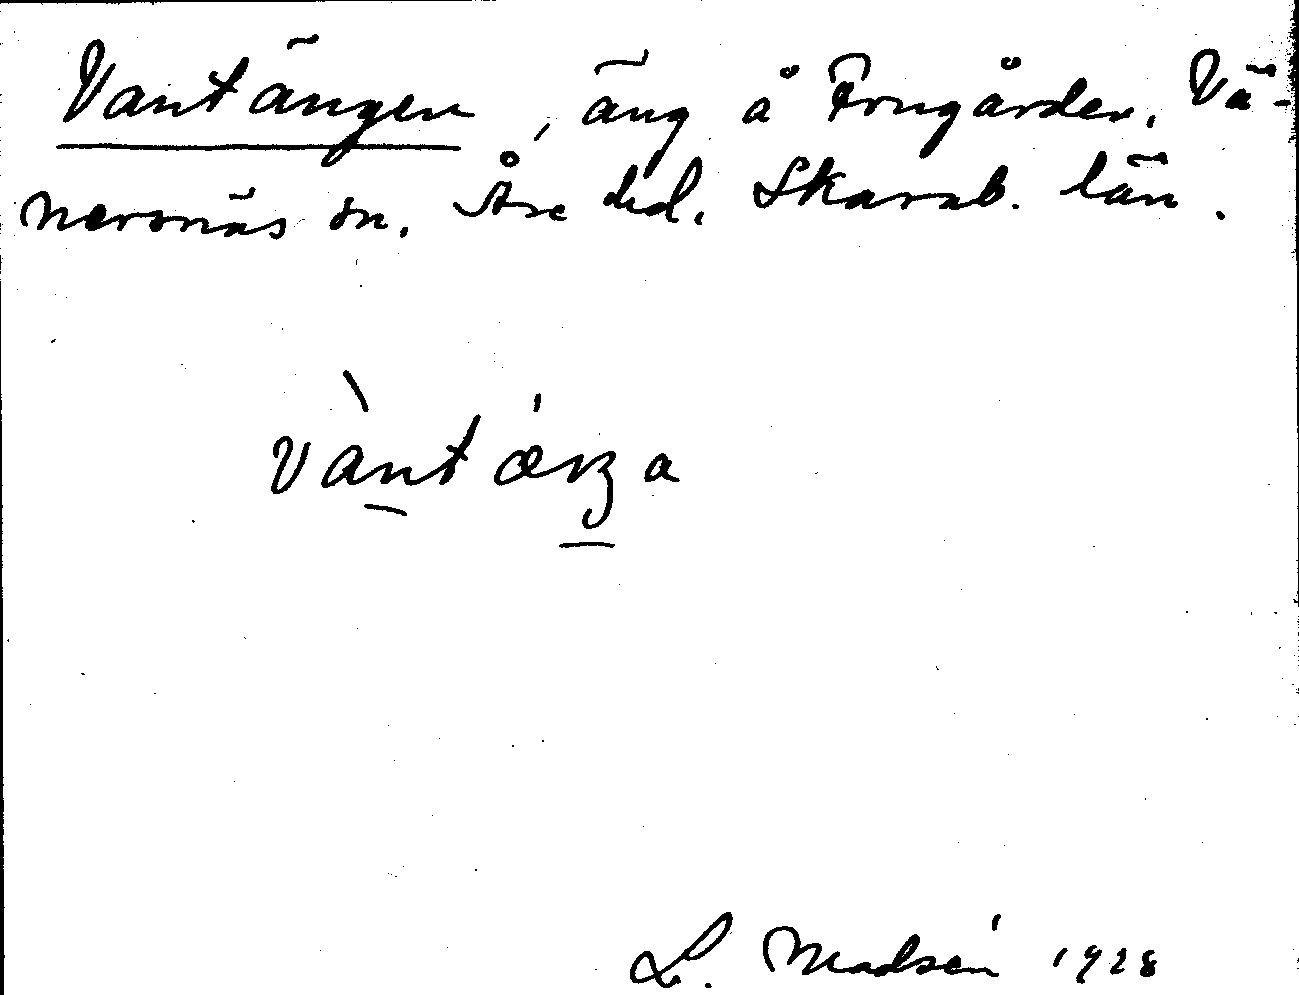 Vantängen, äng å Frugården. Vä-
nersnäs sn. Åse hd. Skarab. län.
vàntæŋa
L. Madsén 1928